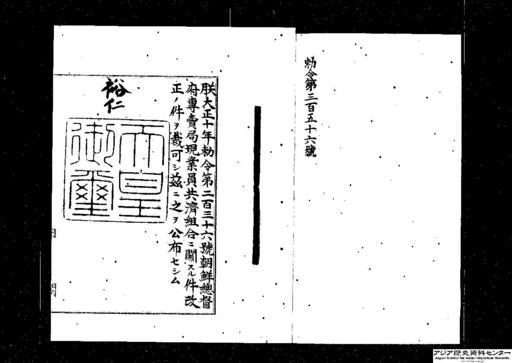 勅令第三百五十六號
朕大正十年勅令第二百三十六號朝鮮總督
府專賣局現業員共濟組合ニ關スル件改
正ノ件ヲ裁可シ茲ニ之ヲ公布セシム
裕仁
天皇御璽
アジア歴史資料センター
Japan Center for Asian Historical Records